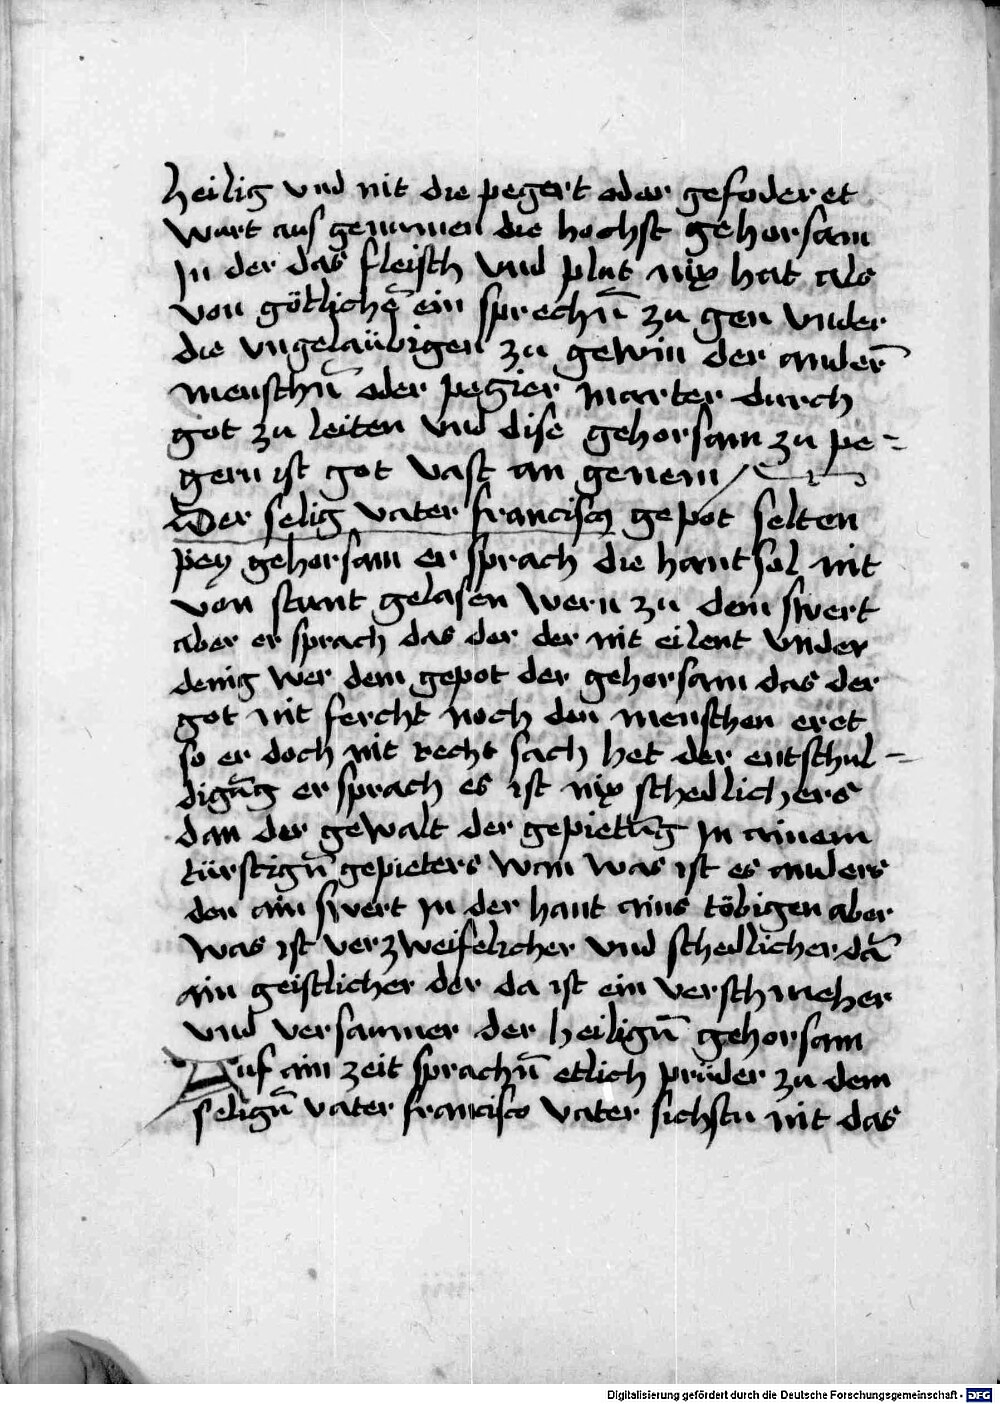 heilig vnd nit die pegert oder gefoderet
wurt aus genumen die hochst gehorsam
Jn der das fleisch vnd plut nix hat als
von götlichē ein sprechn̄ zu gen vnder
die vngelaübigen zu gewin der andern̄
menschn̄ oder pegier marter durch
got zu leiten vnd dise gehorsam zu pe-
gern ist got vast an genem
Der selig vater franciscꝯ gepot selten
pey gehorsam er sprach die hant sol nit
von stunt gelasen wern zu dem swert
aber er sprach das der der nit eilent vnder
denig wer dem gepot der gehorsam das der
got nit fercht noch den menschen eret
so er doch nit recht sach het der entschul-
digūg er sprach es ist nix schedlichers
dan der gewalt der gepietūg Jn ainem
türstign̄ gepieters wan was ist es anders
den ain swert Jn der hant ains töbigen aber
was ist verzweifelicher vnd schedlicher dā
ain geistlicher der da ist ein verschmeher
vnd versaumer der heilign̄ gehorsam
Auf ain zeit sprachn̄ etlich prüder zu dem
selign̄ vater francisco vater sichstu nit das
Digitalisierung gefördert durch die Deutsche Forschungsgemeinschaft - DFG